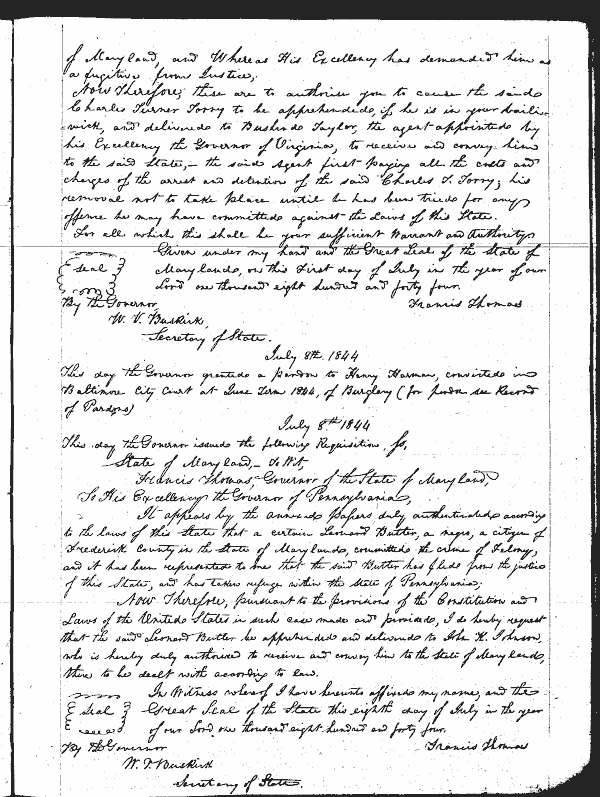 of Maryland, and Whereas His Excellency has demanded him as
a fugitive from Justice;
Now Therefore, these are to authorise you to cause the said
Charles Turner Torry to be apprehended, if he is in your baili-
wick, and delivered to Bushrod Taylor, the agent appointed by
his Excellency the Governor of Virginia, to receive and convey him
to the said State,- the said Agent first paying all the costs and
charges of the arrest and detention of the said Charles T. Torry; his
removal not to take place until he has been tried for any
offence he may have committed against the Laws of this State.
For all which this shall be your sufficient Warrant and Authority
Given under my hand and the Great Seal of the State of
Seal Maryland, on this First day of July in the year of our
Lord one thousand eight hundred and forty four.
By the Governor, Francis Thomas
W. V. Buskirk,
Secretary of State.
July 8th. 1844
This day the Governor granted a pardon to Henry Harman, convicted in
Baltimore City Court at June Term 1844, of Burglary (for pardon see Record
of Pardons)
July 8th 1844
This day the Governor issued the following Requisition
State of Maryland,- To Wit,
Francis Thomas, Governor of the State of Maryland,
To His Excellency the Governor of Pennsylvania,
It appears by the annexed papers duly authenticated according
to the laws of this State that a certain Leonard Butter, a negro, a citizen of
Frederick County in the State of Maryland, committed the crime of Felony,
and it has been represented to me that the said Butter has fled from the justice
of this State, and has taken refuge within the State of Pennsylvania;
Now Therefore, pursuant to the provisions of the Constitution and
Laws of the United States in such case made and provided, I do hereby request
that the said Leonard Butter be apprehended and delivered to John H. Johnson,
who is hereby duly authorised to receive and convey him to the State of Maryland,
there to be dealt with according to law.
In Witness whereof I have hereunto affixed my name, and the
Seal Great Seal of the State this eighth day of July in the year
of our Lord one thousand eight hundred and forty four.
By the Governor Francis Thomas
W. V. Buskirk
Secretary of State.